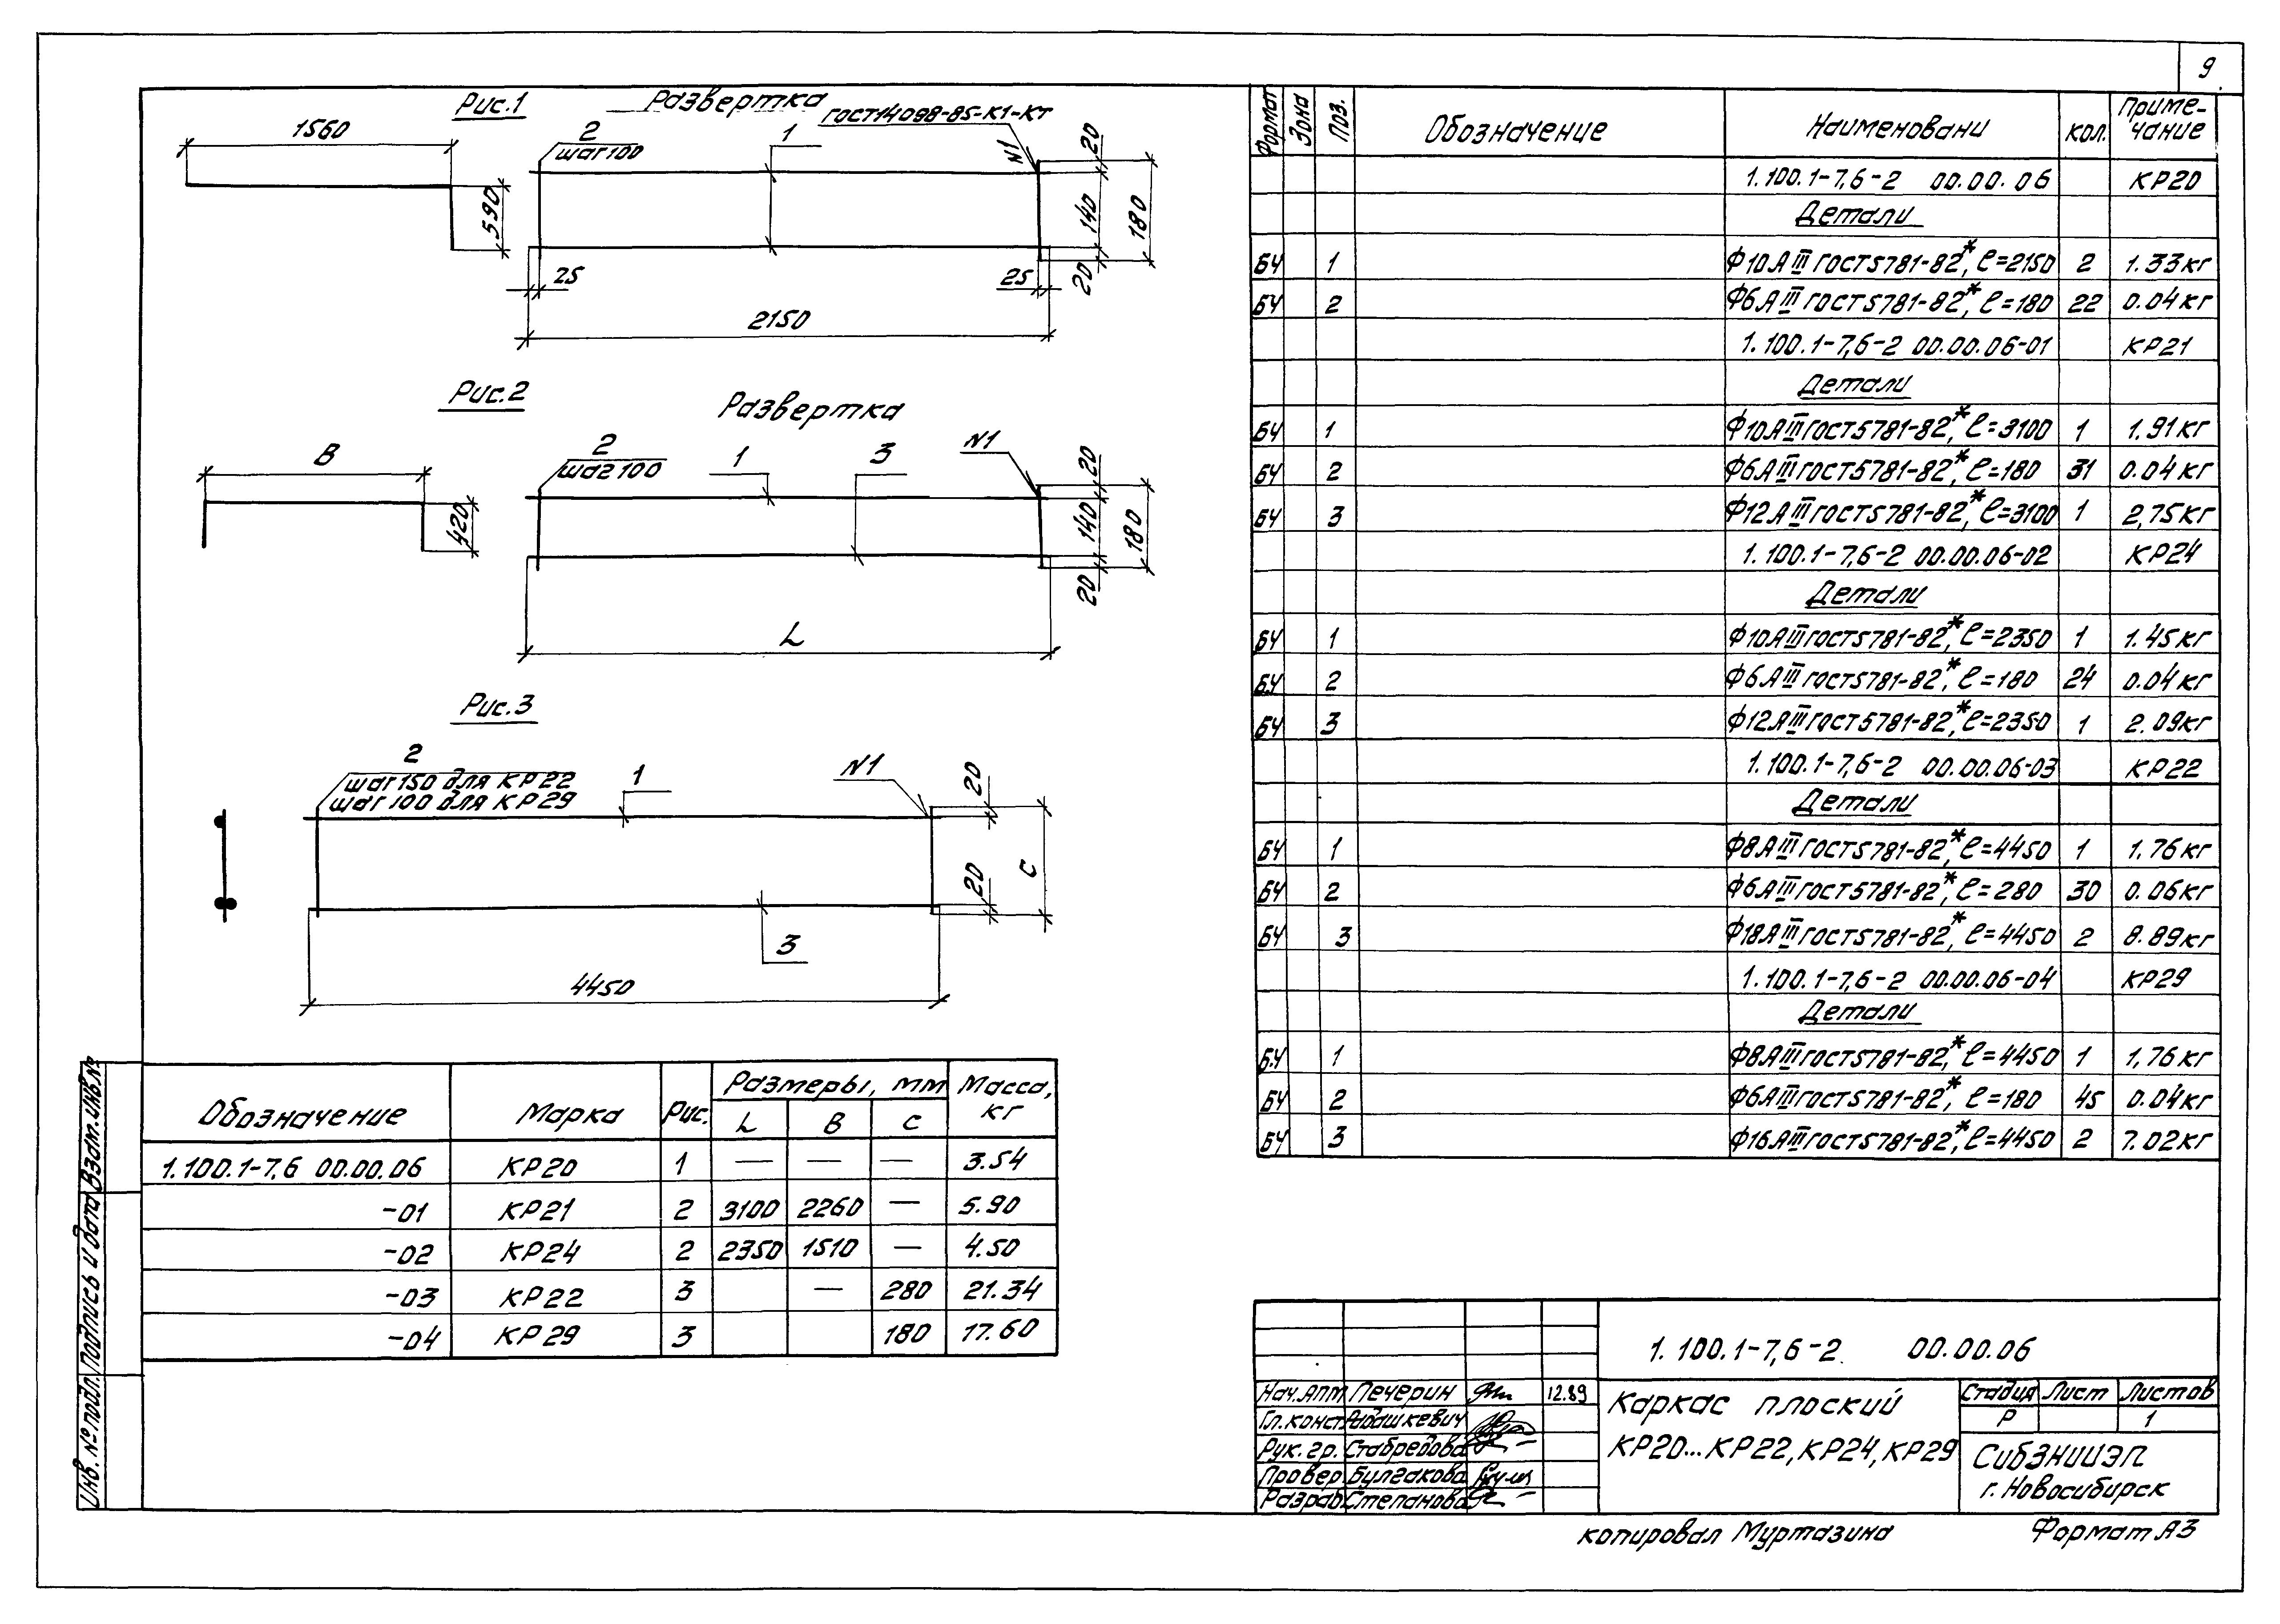 9
Рис.1
Развертка
ГОСТ14098-85-К1-Кт
1560
590
2
шаг100
1
N1
20
140
180
20
25
25
2150
Рис.2
Развертка
В
420
2
шаг100
1
3
N1
20
140
180
20
L
Рис.3
2
шаг150 для КР22
шаг100 для КР29
1
N1
20
20
С
3
4450
Обозначение Марка Рис. Размеры, мм Масса, кг
L В С
1.100.1-7,6 00.00.06 КР20 1 — — — 3.54
-01 КР21 2 3100 2260 — 5.90
-02 КР24 2 2350 1510 — 4.50
-03 КР22 3 — 280 21.34
-04 КР29 3 180 17.60
Формат Зона Поз. Обозначение Наименовани Кол. Приме-
чание
1.100.1-7,6-2 00.00.06 КР20
Детали
БЧ 1 Ф10АIII ГОСТ5781-82*, ℓ=2150 2 1.33кг
БЧ 2 Ф6АIII ГОСТ5781-82*, ℓ=180 22 0.04кг
1.100.1-7,6-2 00.00.06-01 КР21
Детали
БЧ 1 Ф10АIII ГОСТ5781-82*, ℓ=3100 1 1.91кг
БЧ 2 Ф6АIII ГОСТ5781-82*, ℓ=180 31 0.04кг
БЧ 3 Ф12АIII ГОСТ5781-82*, ℓ=3100 1 2,75кг
1.100.1-7,6-2 00.00.06-02 КР24
Детали
БЧ 1 Ф10АIII ГОСТ5781-82*, ℓ=2350 1 1.45кг
БЧ 2 Ф6АIII ГОСТ5781-82*, ℓ=180 24 0.04кг
БЧ 3 Ф12АIII ГОСТ5781-82*, ℓ=2350 1 2.09кг
1.100.1-7,6-2 00.00.06-03 КР22
Детали
БЧ 1 Ф8АIII ГОСТ5781-82*, ℓ=4450 1 1.76кг
БЧ 2 Ф6АIII ГОСТ5781-82*, ℓ=280 30 0.06кг
БЧ 3 Ф18АIII ГОСТ5781-82*, ℓ=4450 2 8.89кг
1.100.1-7,6-2 00.00.06-04 КР29
Детали
БЧ 1 Ф8АIII ГОСТ5781-82*, ℓ=4450 1 1,76кг
БЧ 2 Ф6АIII ГОСТ5781-82*, ℓ=180 45 0.04кг
БЧ 3 Ф16АIII ГОСТ5781-82*, ℓ=4450 2 7.02кг
1.100.1-7,6-2 00.00.06
Нач.АПМ Печерин 12.89
Гл.конст
Рук.гр. Стабредова
Провер Булгакова
Разраб Степанова
Каркас плоский
КР20...КР22, КР24, КР29
Стадия Лист Листов
Р 1
СибЗНИИЭП
г. Новосибирск
Инв. № подл. Подпись и дата Взам. инв. №
копировал Муртазина Формат А3